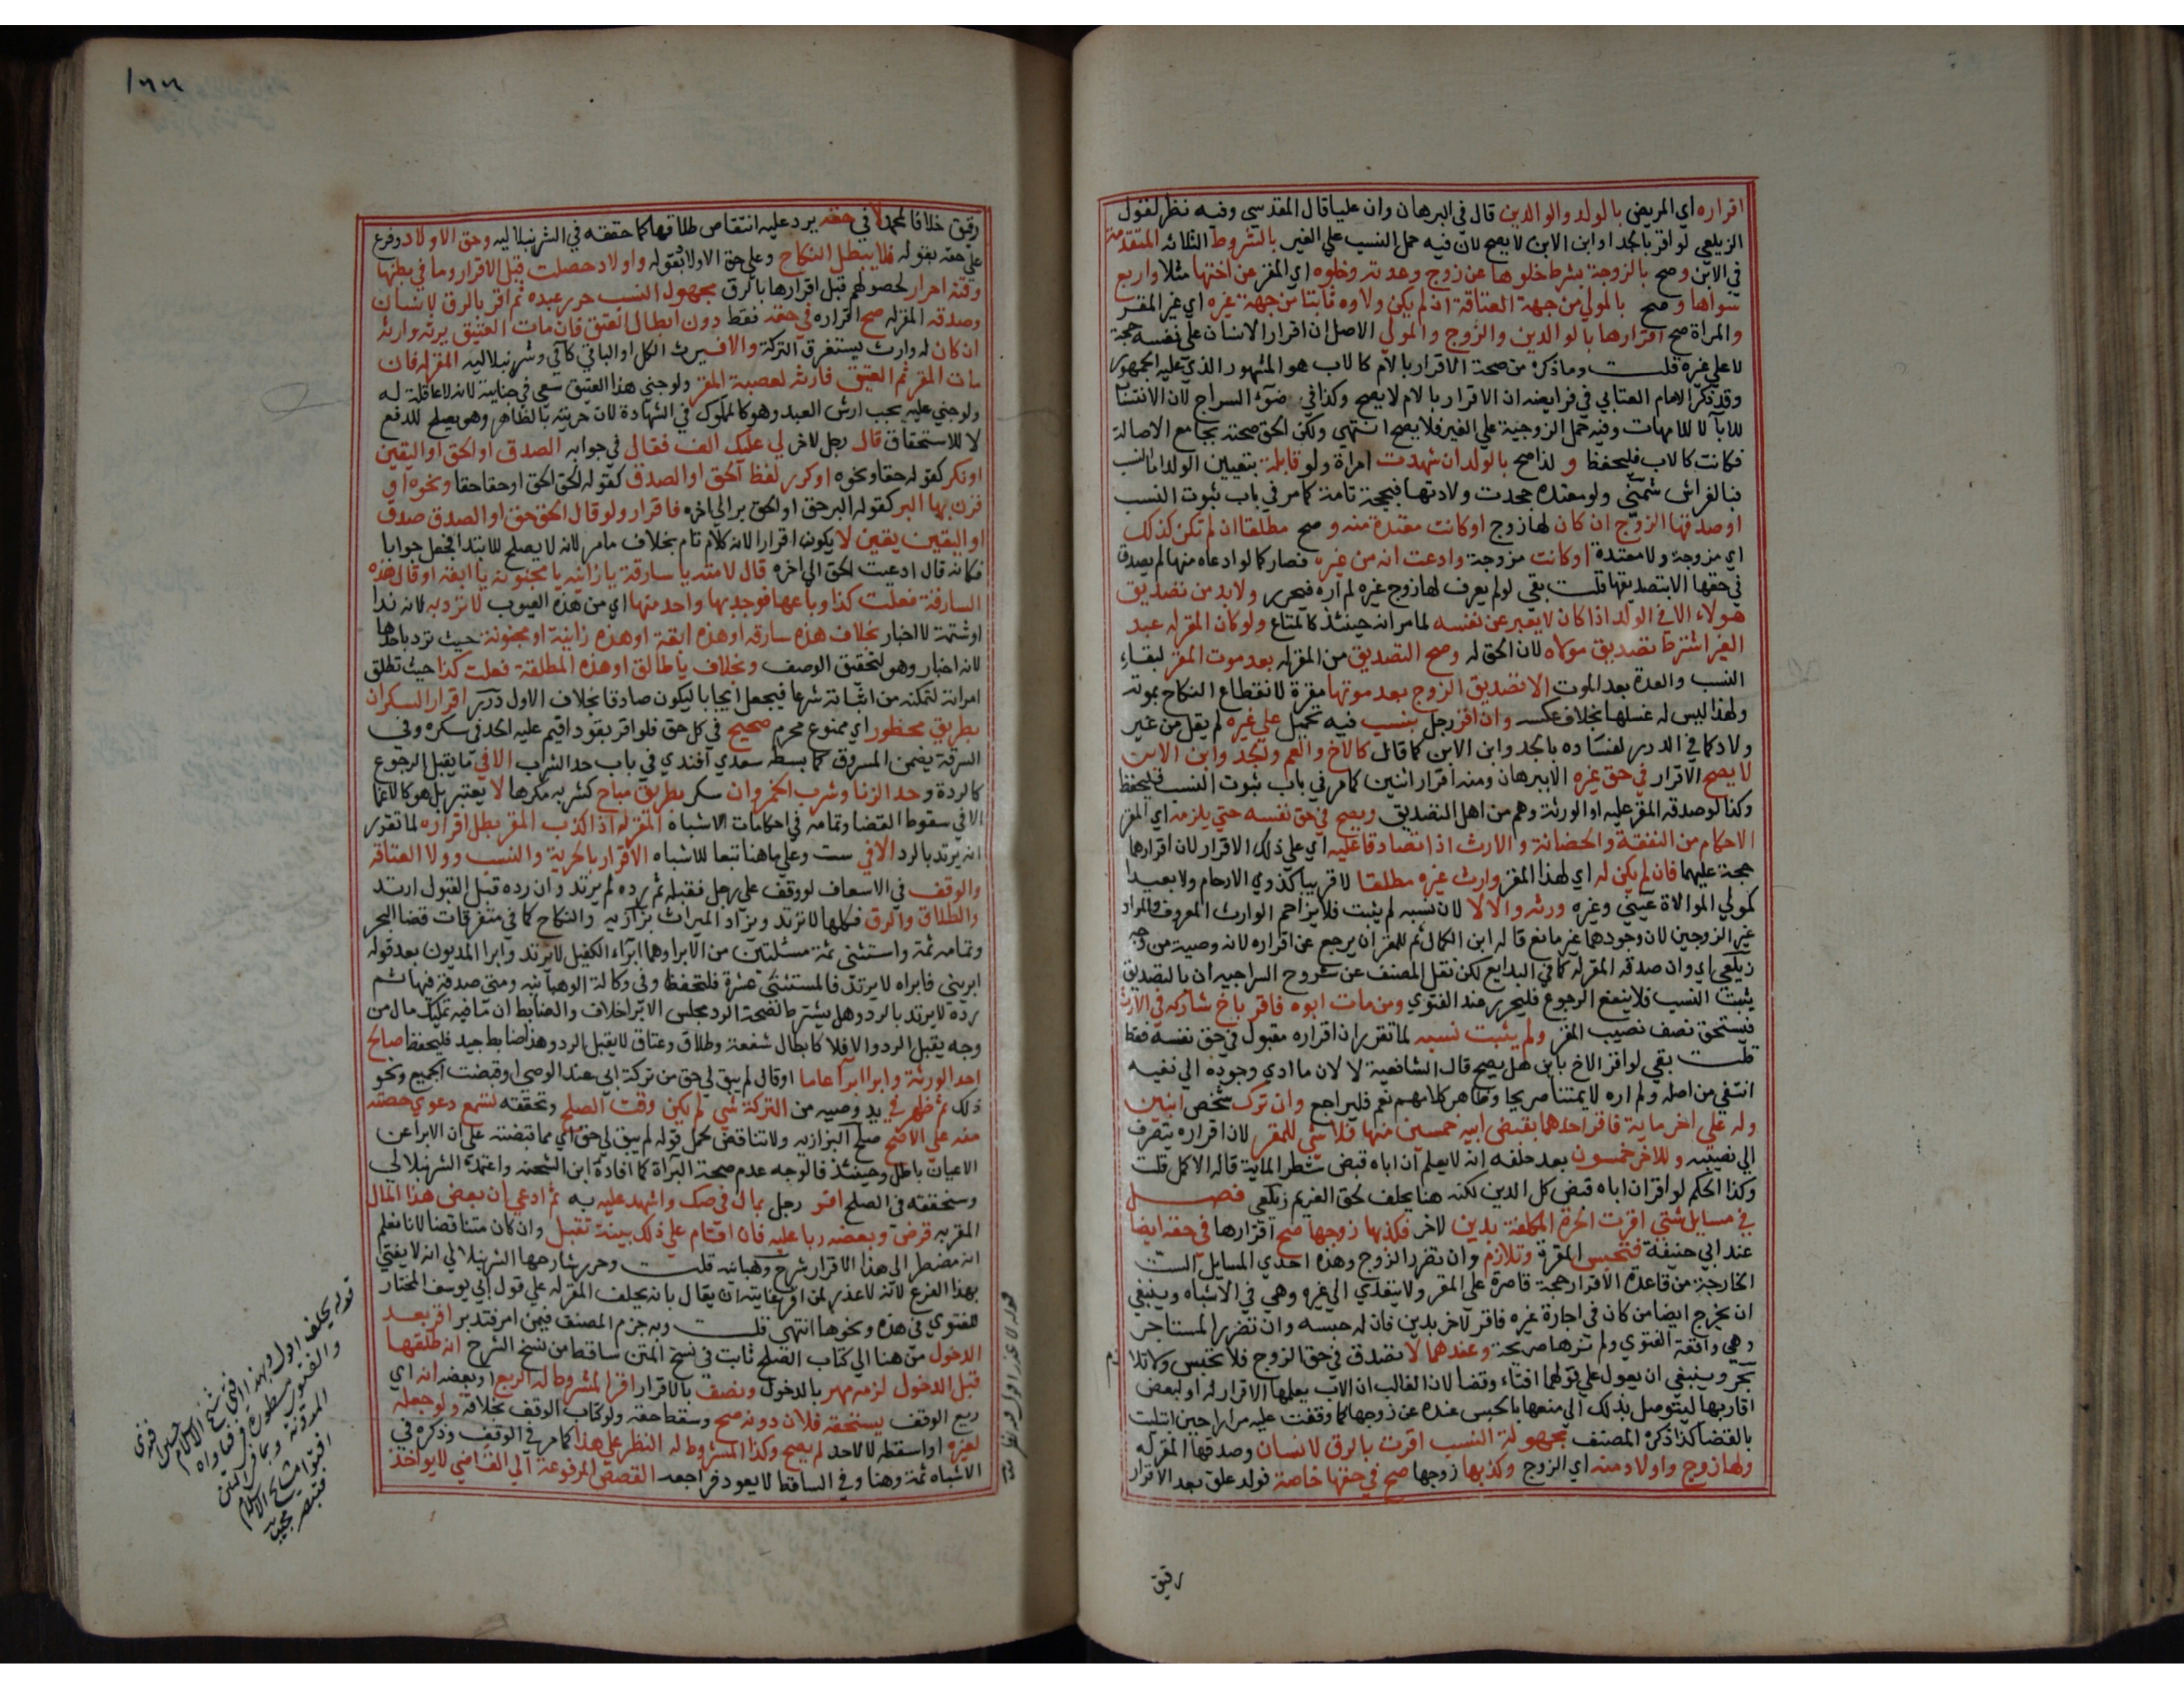 اقراره اي المريض بالولد والوالدين قال في البرهان وان عليا قال المقدسي وفيه نظر لقول
الزيلعي لو اقر بالجد او ابن الابن لا يصح لان فيه حمل النسب علي الغير بالشروط الثلاثه المتقدمة
في الابن وصح بالزوجة بشرط خلوها عن زوج وعدته وخلوه اي المقر عن اختها مثلا واربع
سواها وصح بالمولي من جهة العتاقة ان لم يكن ولاوه ثابتا من جهة غيره اي غير المقر
والمراة صح اقرارها بالوالدين والزوج والمولي الاصل ان اقرار الانسان علي نفسه حجة
لا علي غيره قلت وما ذكره من صحة الاقرار بالام كالاب هو المشهور الذي عليه الجمهور
وقد ذكر الامام العتابي في فرايضه ان الاقرار بالام لا يصح وكذا في ضوء السراج لان الانتساب
للابا لا للامهات وفيه حمل الزوجية علي الغير فلا يصح انتهي ولكن الحق صحته بجامع الاصالة
فكانت كالاب فليحفظ و لذا صح بالولد ان شهدت امراة ولو قابلة بتعيين الولد اما النسب
فبالفراش شمني ولو معتده جحدت ولادتها فبحجة تامة كما مر في باب ثبوت النسب
او صدقها الزوج ان كان لها زوج او كانت معتدة منه وصح مطلقا ان لم تكن كذلك
اي مزوجة ولا معتدة او كانت مزوجة وادعت انه من غيره فصار كما لو ادعاه منها لم يصدق
في حقها الا بتصديقها قلت بقي لو لم يعرف لها زوج غيره لم اره فيحرر ولا بد من تصديق
هولاء الا في الولد اذا كان لا يعبر عن نفسه لما مر انه حينئذ كالمتاع ولو كان المقر له عبد
الغير اشترط تصديق مولاه لان الحق له وصح التصديق من المقر له بعد موت المقر لبقاء
النسب والعدة بعد الموت الا تصديق الزوج بعد موتها مقرة لانقطاع النكاح بموتها
ولهذا ليس له غسلها بخلاف عكسه وان اقر رجل بنسب فيه تحميل علي غيره لم يقل من غير
ولاد كما في الدرر لفساده بالجد وابن الابن كما قال كالاخ والعم والجد وابن الابن
لا يصح الاقرار في حق غيره الا ببرهان ومنه اقرار اثنين كما مر في باب ثبوت النسب فليحفظ
وكذا لو صدقه المقر عليه او الورثة وهم من اهل التصديق ويصح في حق نفسه حتي يلزمه اي المقر
الاحكام من النفقة والحضانة والارث اذا تصادقا عليه اي علي ذلك الاقرار لان اقرارهما
حجة عليهما فان لم يكن له اي لهذا المقر وارث غيره مطلقا لا قريبا كذوي الارحام ولا بعيدا
كمولي الموالاة عيني وغيره ورثه والا لا لان نسبه لم يثبت فلا يزاحم الوارث المعروف والمراد
غير الزوجين لان وجودهما غير مانع قاله ابن الكمال ثم للمقر ان يرجع عن اقراره لانه وصية من وجه
زيلعي اي وان صدقه المقر له كما في البدايع لكن نقل المصنف عن شروح السراجيه ان بالتصديق
يثبت النسب فلا ينفع الرجوع فليحرر عند الفتوي ومن مات ابوه فاقر باخ شاركه في الارث
فيستحق نصف نصيب المقر ولم يثبت نسبه لما تقرر ان اقراره مقبول في حق نفسه فقط
قلت بقي لو اقر الاخ بابن هل يصح قال الشافعية لا لان ما ادي وجوده الي نفيه
انتفي من اصله ولم اره لايمتنا صريحا وظاهر كلامهم نعم فليراجع وان ترك شخص ابنين
وله علي اخر ماية فاقر احدهما بقبض ابيه خمسين منها فلا شي للمقر لان اقراره ينصرف
الي نصيبه وللاخر خمسون بعد حلفه انه لا يعلم ان اباه قبض شطر الماية قاله الاكمل قلت
وكذا الحكم لو اقر ان اباه قبض كل الدين لكنه هنا يحلف لحق الغريم زيلعي فصل
في مسايل شتي اقرت الحرة المكلفة بدين لاخر فكذبها زوجها صح اقرارها في حقه ايضا
عند ابي حنيفة فتحبس المقرة وتلازم وان تضرر الزوج وهذه احدي المسايل الست
الخارجة من قاعدة الاقرار حجة قاصرة علي المقر ولا يتعدي الي غيره وهي في الاشباه وينبغي
ان يخرج ايضا من كان في اجارة غيره فاقر لاخر بدين فان له حبسه وان تضرر المستاجر
وهي واقعة الفتوي ولم نرها صريحة وعندهما لا تصدق في حق الزوج فلا تحبس ولا تلازم
بحر وينبغي ان يعول علي قولهما افتاء وقضا لان الغالب ان الاب يعلمها الاقرار له او لبعض
اقاربها ليتوصل بذلك الي منعها بالحبس عنده عن زوجها كما وقفت عليه مرارا حين ابتليت
بالقضا كذا ذكره المصنف مجهولة النسب اقرت بالرق لانسان وصدقها المقر له
ولها زوج واولاد منه اي الزوج وكذبها زوجها صح في حقها خاصة فولد علق بعد الاقرار
رقيق
١٢٢
رقيق خلافا لمحمد لا في حقه يرد عليه انتقاص طلاقها كما حققه في الشرنبلاليه وحق الاولاد وفرع
علي حقه بقوله فلا يبطل النكاح وعلي حق الاولاد بقوله واولاد حصلت قبل الاقرار وما في بطنها
وقته احرار لحصولهم قبل اقرارها بالرق مجهول النسب حرر عبده ثم اقر بالرق لانسان
وصدقه المقر له صح اقراره في حقه فقط دون ابطال العتق فان مات العتيق يرثه وارثه
ان كان له وارث يستغرق التركة والا فيرث الكل او الباقي كافي وشرنبلاليه المقر له فان
مات المقر ثم العتيق فارثه لعصبة المقر ولو جني هذا العتيق سعي في جنايته لانه لا عاقلة له
ولو جني عليه يجب ارش العبد وهو كالمملوك في الشهادة لان حريته بالظاهر وهو يصلح للدفع
لا للاستحقاق قال رجل لاخر لي عليك الف فقال في جوابه الصدق او الحق او اليقين
او نكر كقوله حقا ونحوه او كرر لفظ الحق او الصدق كقوله الحق الحق او حقا حقا ونحوه او
قرن بها البر كقوله البر حق او الحق بر الي اخره فاقرار ولو قال الحق حق او الصدق صدق
او اليقين يقين لا يكون اقرارا لانه كلام تام بخلاف ما مر لانه لا يصلح للابتدا فجعل جوابا
فكانه قال ادعيت الحق الي اخره قال لامته يا سارقة يا زانيه يا مجنونة يا ابقه او قال هذه
السارقة فعلت كذا وباعها فوجد بها واحد منها اي من هذه العيوب لا ترد به لانه ندا
او شتمة لا اخبار بخلاف هذه سارقه او هذه ابقة او هذه زانية او مجنونة حيث ترد باحدها
لانه اخبار وهو لتحقيق الوصف وبخلاف يا طالق او هذه المطلقة فعلت كذا حيث تطلق
امراته لتمكنه من اثباته شرعا فيجعل ايجابا ليكون صادقا بخلاف الاول درر اقرار السكران
بطريق محظور اي ممنوع محرم صحيح في كل حق فلو اقر بقود اقيم عليه الحد في سكره وفي
السرقة يضمن المسروق كما بسطه سعدي افندي في باب حد الشرب الا في ما يقبل الرجوع
كالردة وحد الزنا وشرب الخمر وان سكر بطريق مباح كشربه مكرها لا يعتبر بل هو كالاغما
الا في سقوط القضا وتمامه في احكامات الاشباه المقر له اذا كذب المقر بطل اقراره لما تقرر
انه يرتد بالرد الا في ست وعليها هنا تبعا للاشباه الاقرار بالحرية والنسب وولا العتاقه
والوقف في الاسعاف لو وقف علي رجل فقبله ثم رده لم يرتد وان رده قبل القبول ارتد
والطلاق والرق فكلها لا ترتد ويزاد الميراث بزازيه والنكاح كما في متفرقات قضا البحر
وتمامه ثمة واستثني ثمة مسئلتين من الابرا وهما ابراء الكفيل لا يرتد وابرا المديون بعد قوله
ابريني فابراه لا يرتد فالمستثني عشرة فلتحفظ وفي وكالة الوهبانيه ومتي صدقه فيها ثم
رده لا يرتد بالرد وهل يشترط لصحة الرد مجلس الابرا خلاف والضابط ان ما فيه تمليك مال من
وجه يقبل الرد والا فلا كابطال شفعة وطلاق وعتاق لا يقبل الرد وهذا ضابط جيد فليحفظ صالح
احد الورثة وابرا ابرا عاما او قال لم يبق لي حق من تركة ابي عند الوصي او قبضت الجميع ونحو
ذلك ثم ظهر في يد وصيه من التركة شي لم يكن وقت الصلح وتحققه تسمع دعوي حصته
منه علي الاصح صلح البزازيه ولا تناقض لحمل قوله لم يبق لي حق اي مما قبضته علي ان الابرا عن
الاعيان باطل وحينئذ فالوجه عدم صحة البرآة كما افاده ابن الشحنه واعتمده الشرنبلالي
وسنحققه في الصلح اقر رجل بمال في صك واشهد عليه به ثم ادعي ان بعض هذا المال
المقر به قرض وبعضه ربا عليه فان اقام علي ذلك بينة تقبل وان كان متناقضا لانا نعلم
انه مضطر الي هذا الاقرار شرح وهبانيه قلت وحرر شارحها الشرنبلالي انه لا يفتي
بهذا الفرع لانه لا عذر لمن اقر غايته ان يقال بانه يحلف المقر له علي قول ابي يوسف المختار
للفتوي في هذه ونحوها انتهي قلت وبه جزم المصنف فيمن اقر فتدبر اقر بعد
الدخول من هنا الي كتاب الصلح ثابت في نسخ المتن ساقط من نسخ الشرح انه طلقها
قبل الدخول لزمه مهر بالدخول ونصف بالاقرار اقر المشروط له الريع او بعضه انه اي
ريع الوقف يستحقه فلان دونه صح وسقط حقه ولو كتاب الوقف بخلافه ولو جعله
لغيره او اسقطه لا لاحد لم يصح وكذا المشروط له النظر علي هذا كما مر في الوقف وذكره في
الاشباه ثمة وهنا وفي الساقط لا يعود فراجعه القصص المرفوعة الي القاضي لا يواخذ